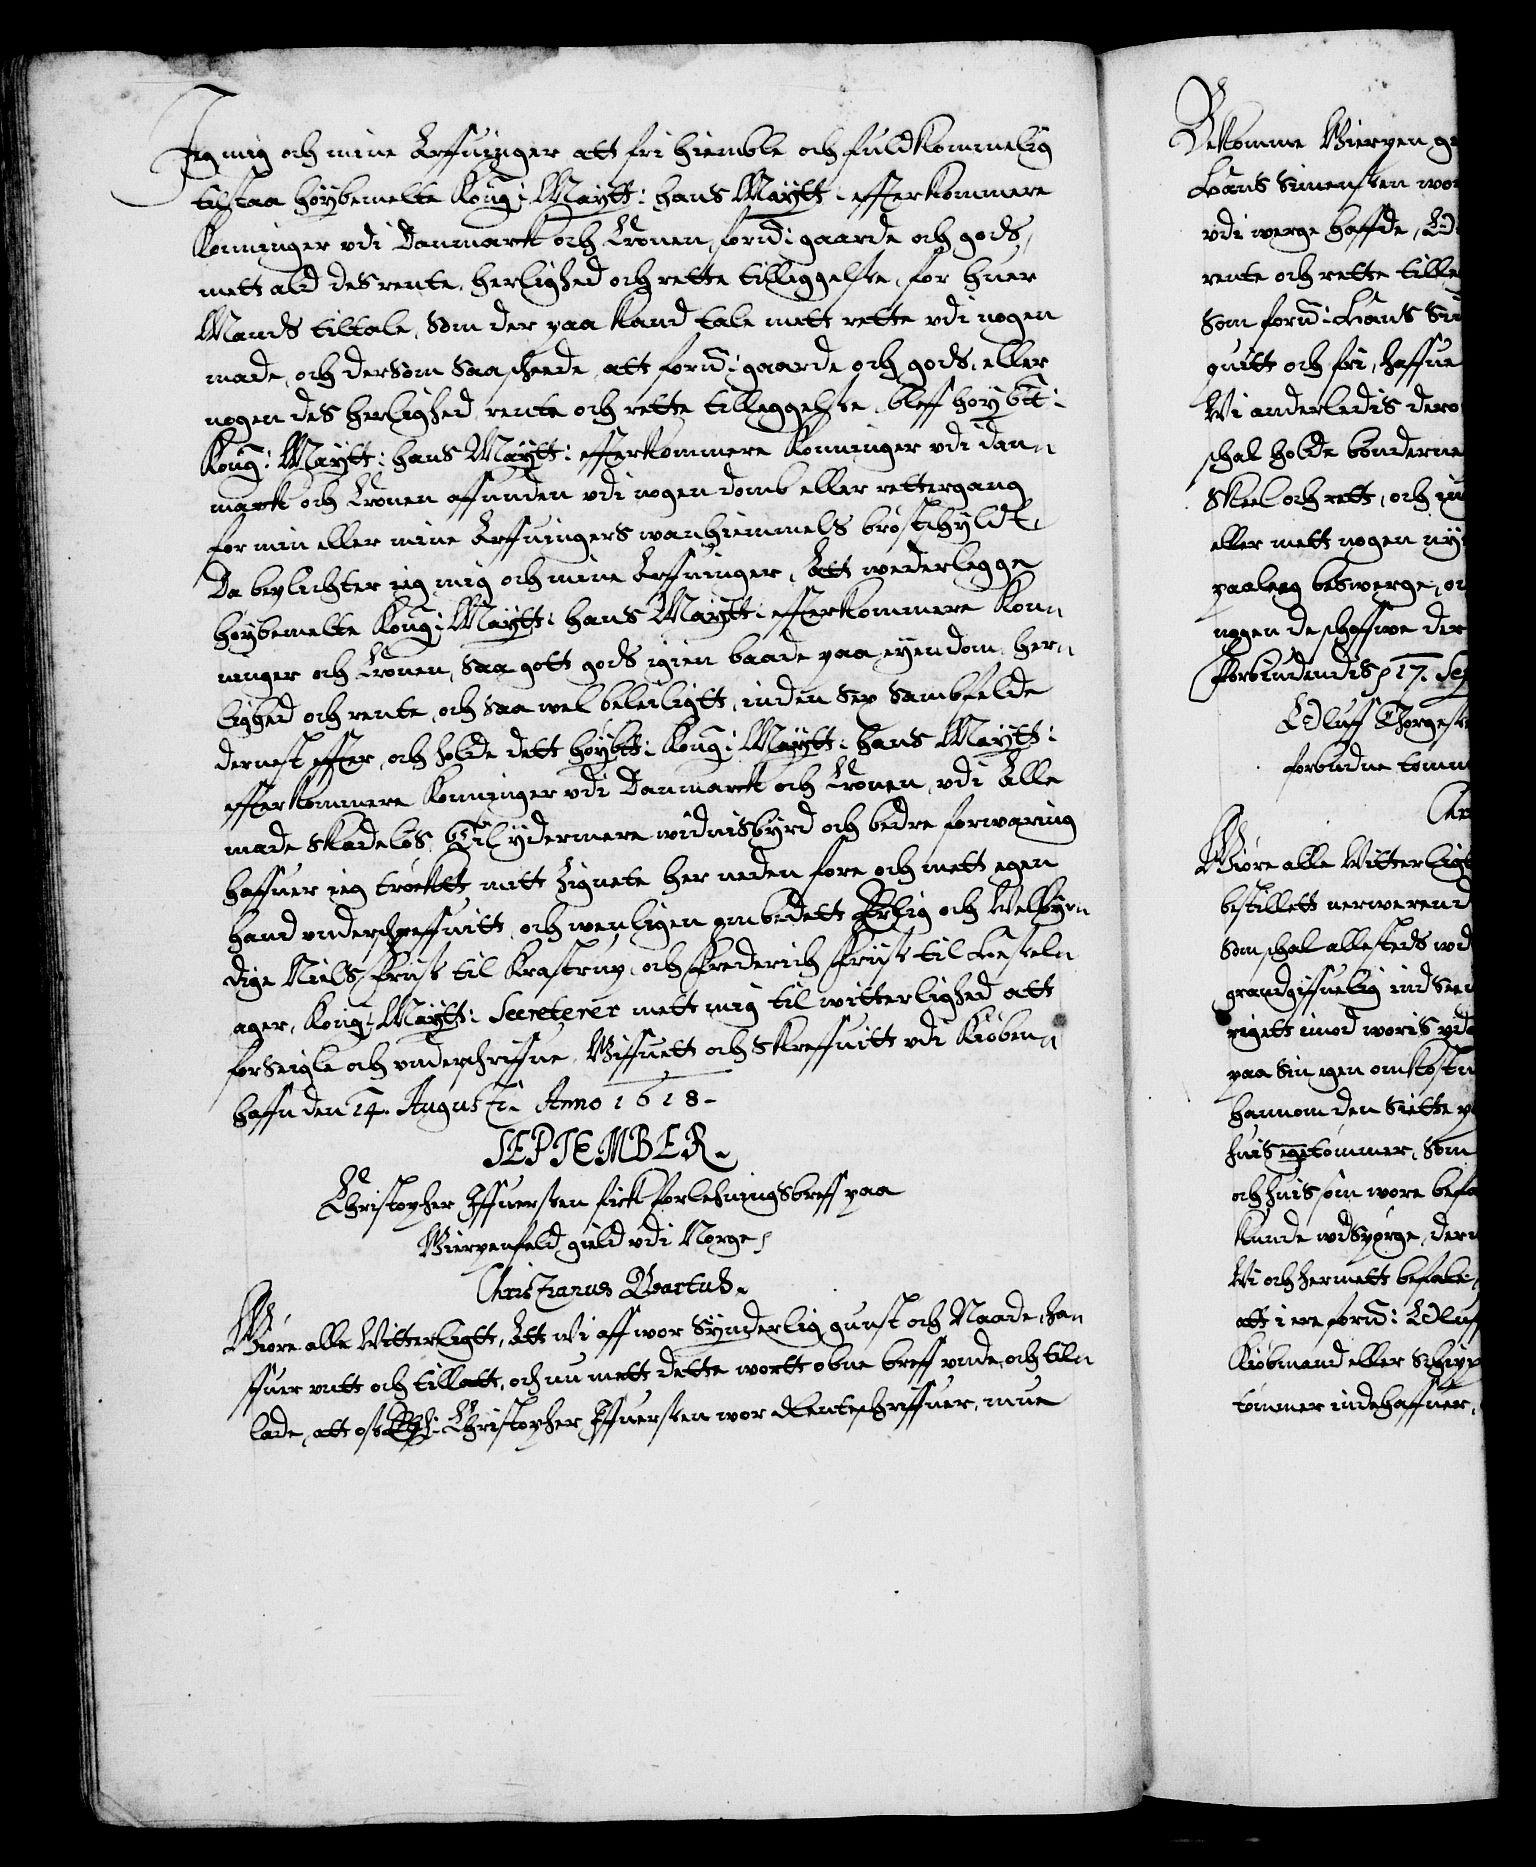 Jeg mig och mine Arffuinger att fri hiemble och fuldkommelig
tilstaa høybemelte Kong: Maytt: hans Maytt: efterkommere
Konninger vdi Danmark och Cronen, forn: gaarde och gods,
mett ald des rente, herlighed och rette tilliggelse, for huer
Mands tiltale, som der paa kand tale mett rette vdi nogen
made, och dersom saa scheede, att forn: gaarde och gods, eller
nogen des herlighed, rente och rette tilleggelse, bleff høybt:
Kong: Maytt: hans Maytt: efterkommere Konninger vdi Dan-
mark och Cronen affunden vdi nogen domb eller rettergang
for min eller mine Arffuingers wanhiemmels brøst schyldt,
Da beplichter ieg mig och mine Arffuinger, Att wederlegge
høybemelte Kong: Maytt: hans Maytt: efterkommere Kon-
ninger och Cronen, saa gott gods igien baade paa eyendom, her-
lighed och rente, och saa wel beleiligtt, inden sex samfelde
dernest effter, och holde dett høybt: Kong: Maytt: hans Maytt:
efterkommere Konninger vdi Danmarck och Cronen, vdi Alle
made skadeløs, Til ydermere widnisbyrd och bedre forwaring
haffuer ieg tröcktt mitt Zignete her neden fore och mett egen
hand vnderschreffuitt, och wenligen ombedett Ærlig och Welbyr-
dige Niels Friis til Krastrup, och Frederich Friis til Hesseln
ager, Kong: Maytt: Secreterer mett mig til witterlighed att
forseigle och vnderschriffue, Giffuett och Skreffuitt vdi Kiøben-
haffn den 14. Augusti. Anno 1618.
SEPTEMBER.
Christopher Iffuersen fick forlehningsbreff paa
Wierpenfeld gield vdi Norge,
Christianus Quartus.
Giøre alle Witterligtt, Att Wi aff wor Synderlig gunst och Naade, ha-
ffuer vntt och tilladt, och nu mett dette wortt obne breff vnde och til-
lade, att oss Elsk: Christopher Iffuersen wor Renteschriffuer, mue
Bekomme Wierpen g
Hans Simensen wo
vdi werge haffde,
rente och rette tille
Som forn: Hans Si
quitt och fri, haffue
Wi anderledis dero
schal holde bønderne
Skeel och rett, och
eller mett nogen ny
paaleg beswerge,
nogen de schoffue der
Forbiudendis 17. Sep
Oluff Thorgest
forbudne tømm
Chr
Giøre alle Witterligt
bestillett nerwerend
Som schal allesteds wd
grandgiffuelig ind see
rigett imod woris vd
paa sin egen omkostn
hannom den Siette p
huis egetømmer, som
och huis som wore befa
kunde wdspørge, der
Wi och hermett befale,
att i ere forn: Oluff
Kiøbmand eller Schipp
tømmer indehaffuer,